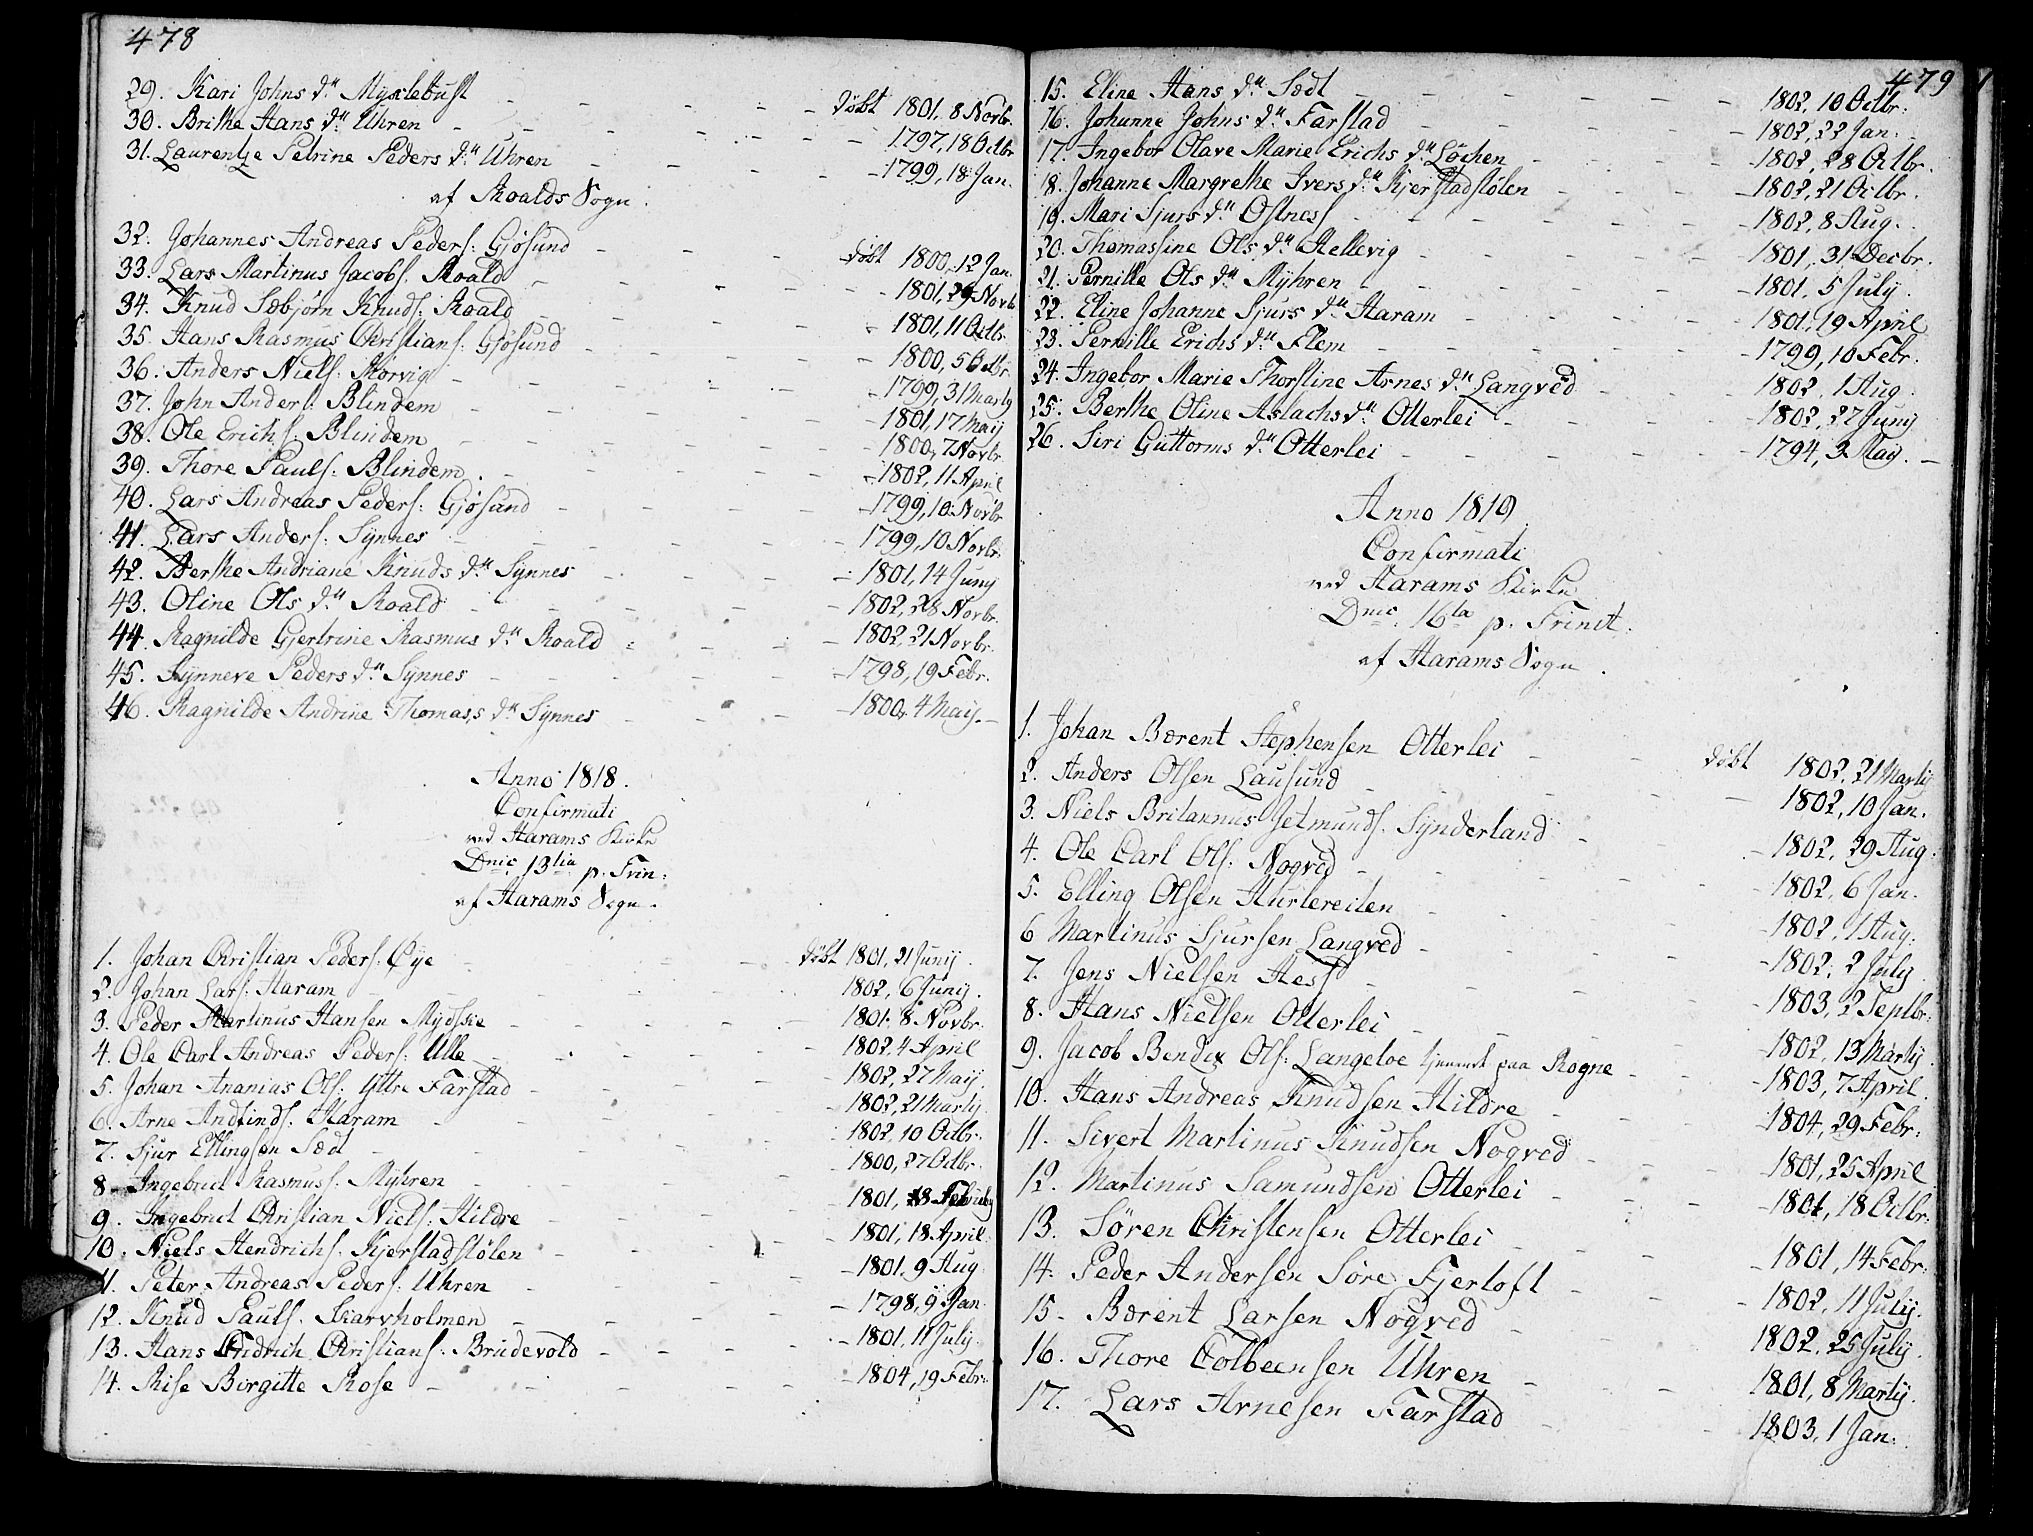 478
29. Kari Johns d: Myxlebust - - - - døbt 1801, 8 Novbr.
30. Brithe Hans d: Uhren - - - 1797, 18 Octbr
31. Laurentze Petrine Peders d: Uhren - - - 1799, 18 Jan.
af Roalds Sogn.
32. Johannes Andreas Peders: Gjøsund - - - døbt 1800, 12 Jan.
33. Lars Martinus Jacobs. Roald - - - 1801, 29 Novb
34. Knud Sæbjørn Knuds: Roald - - - 1801, 11 Octbr.
35. Hans Rasmus Christians: Gjøsund - - - 1800, 5 Octbr.
36. Anders Niels. Korvig - - - 1799, 31 Martij
37. John Anders: Blindem - - - 1801, 17 Maij
38. Ole Erichs: Blindem - - - 1800, 7 Novbr.
39. Thore Pauls: Blindem. - - - 1802, 11 April
40. Lars Andreas Peders: Gjøsund - - - 1799, 10 Novbr
41. Lars Anders: Synnes - - - 1799, 10 Novbr.
42. Berthe Andriane Knuds d: Synnes - - - 1801, 14 Junij
43. Oline Ols d: Roald - - - 1802, 28 Novbr.
44. Ragnilde Gjertrine Rasmus d: Roald - - - 1802, 21 Novbr.
45. Synneve Peders d: Synnes - - - 1798, 19 Febr.
46. Ragnilde Andrine Thomas, d: Synnes - - - 1800, 4 Maij. -
Anno 1818.
Confirmati
ved Harams Kirke
Dnic: 13tia p. Trin:
af Harams Sogn.
1. Johan Christian Peders. Øye - - - døbt 1801, 21 Junij.
2. Johan Lars: Haram - - - 1802, 6 Junij.
3. Peder Martinus Hansen Mydskie - - - 1801. 8 Novbr.
4. Ole Carl Andreas Peders: Ulle - - - 1802, 4 April
5. Johan Ananias Ols: Yttre Farstad - - - 1802, 27 Maij.
6. Arne Andfinds: Haram - - - 1802, 21 Martij
7. Sjur Ellingsen Sædt - - - 1802, 10 Octbr.
8. Ingebrict Rasmus. Myhren - - - 1800, 27 Octbr.
9. Ingebrict Christian Niels: Hildre - - - 1801,
10. Niels Hendrichs. Kjerstadstølen - - - 1801, 18 April.
11. Peter Andreas Peders: Uhren - - - 1801, 9 Aug.
12. Knud Pauls. Skarvholmen - - - 1798, 9 Jan.
13. Hans Endrich Christians: Brudevold - - - 1801, 11 July.
14. Rise Birgitte Rose - - - 1804, 19 Febr.
479
15. Eline Hans d: Sædt - - - 1802, 10 Octbr.
16. Johanne Johns d: Farstad - - - 1802, 22 Jan.
17. Ingebor Olave Marie Erichs d: Løchen - - - 1802, 28 Octbr.
18. Johanne Margrethe Ivers d: Kjerstadstølen - - - 1802, 21 Octbr.
19. Mari Sjurs d: Østness - - - 1802, 8 Aug.
20. Thomassine Ols d: Hellevig - - - 1801, 31 Decbr.
21. Pernille Ols d: Myhren - - - 1801, 5 July.
22. Eline Johanne Sjurs d: Haram - - - 1801, 19 April
23. Pernille Erichs d: Flem - - - 1799, 10 Febr.
24. Ingebor Marie Thorstine Arnes d: Langved - - - 1802, 1 Aug
25. Berthe Oline Aslachs d: Otterlei - - - 1802, 27 Junij
26. Siri Guttorms d: Otterlei - - - 1794, 3 Maij. -
Anno 1819.
Confirmati
ved Harams Kirke
Dnic: 16ta p. Trinit.
af Harams Sogn.
1. Johan Bærent Stephensen Otterlei - - - døbt 1802, 21 Martij
2. Anders Olsen Lausund - - - 1802, 10 Jan.
3. Niels Britannus Setmunds. Synderland - - - 1802, 29 Aug.
4. Ole Carl Ols. Nogved - - - 1802, 6 Jan.
5. Elling Olsen Hurlereiten - - - 1802, 1 Aug.
6 Martinus Sjursen Langved - - - 1802, 2 July
7. Jens Nielsen Hess - - - 1803, 2 Septbr.
8. Hans Nielsen Otterlei - - - 1802, 13 Martij
9. Jacob Bendix Ols: Langeloe tjenende paa Rogne - - - 1803, 7 April.
10. Hans Andreas Knudsen Hildre - - - 1804, 29 Febr:
11. Sivert Martinus Knudsen Nogved - - - 1801, 25 April
12. Martinus Samundsen Otterlei - - - 1801, 18 Octbr.
13. Søren Christensen Otterlei - - - 1801, 14 Febr:
14. Peder Andersen Søre Fjertoft - - - 1802, 11 Julij.
15. Bærent Larsen Nogved - - - 1802, 25 Julij.
16. Thore Colbeensen Uhren - - - 1801, 8 Martij.
17. Lars Arnesen Farstad - - - 1803, 1 Jan.